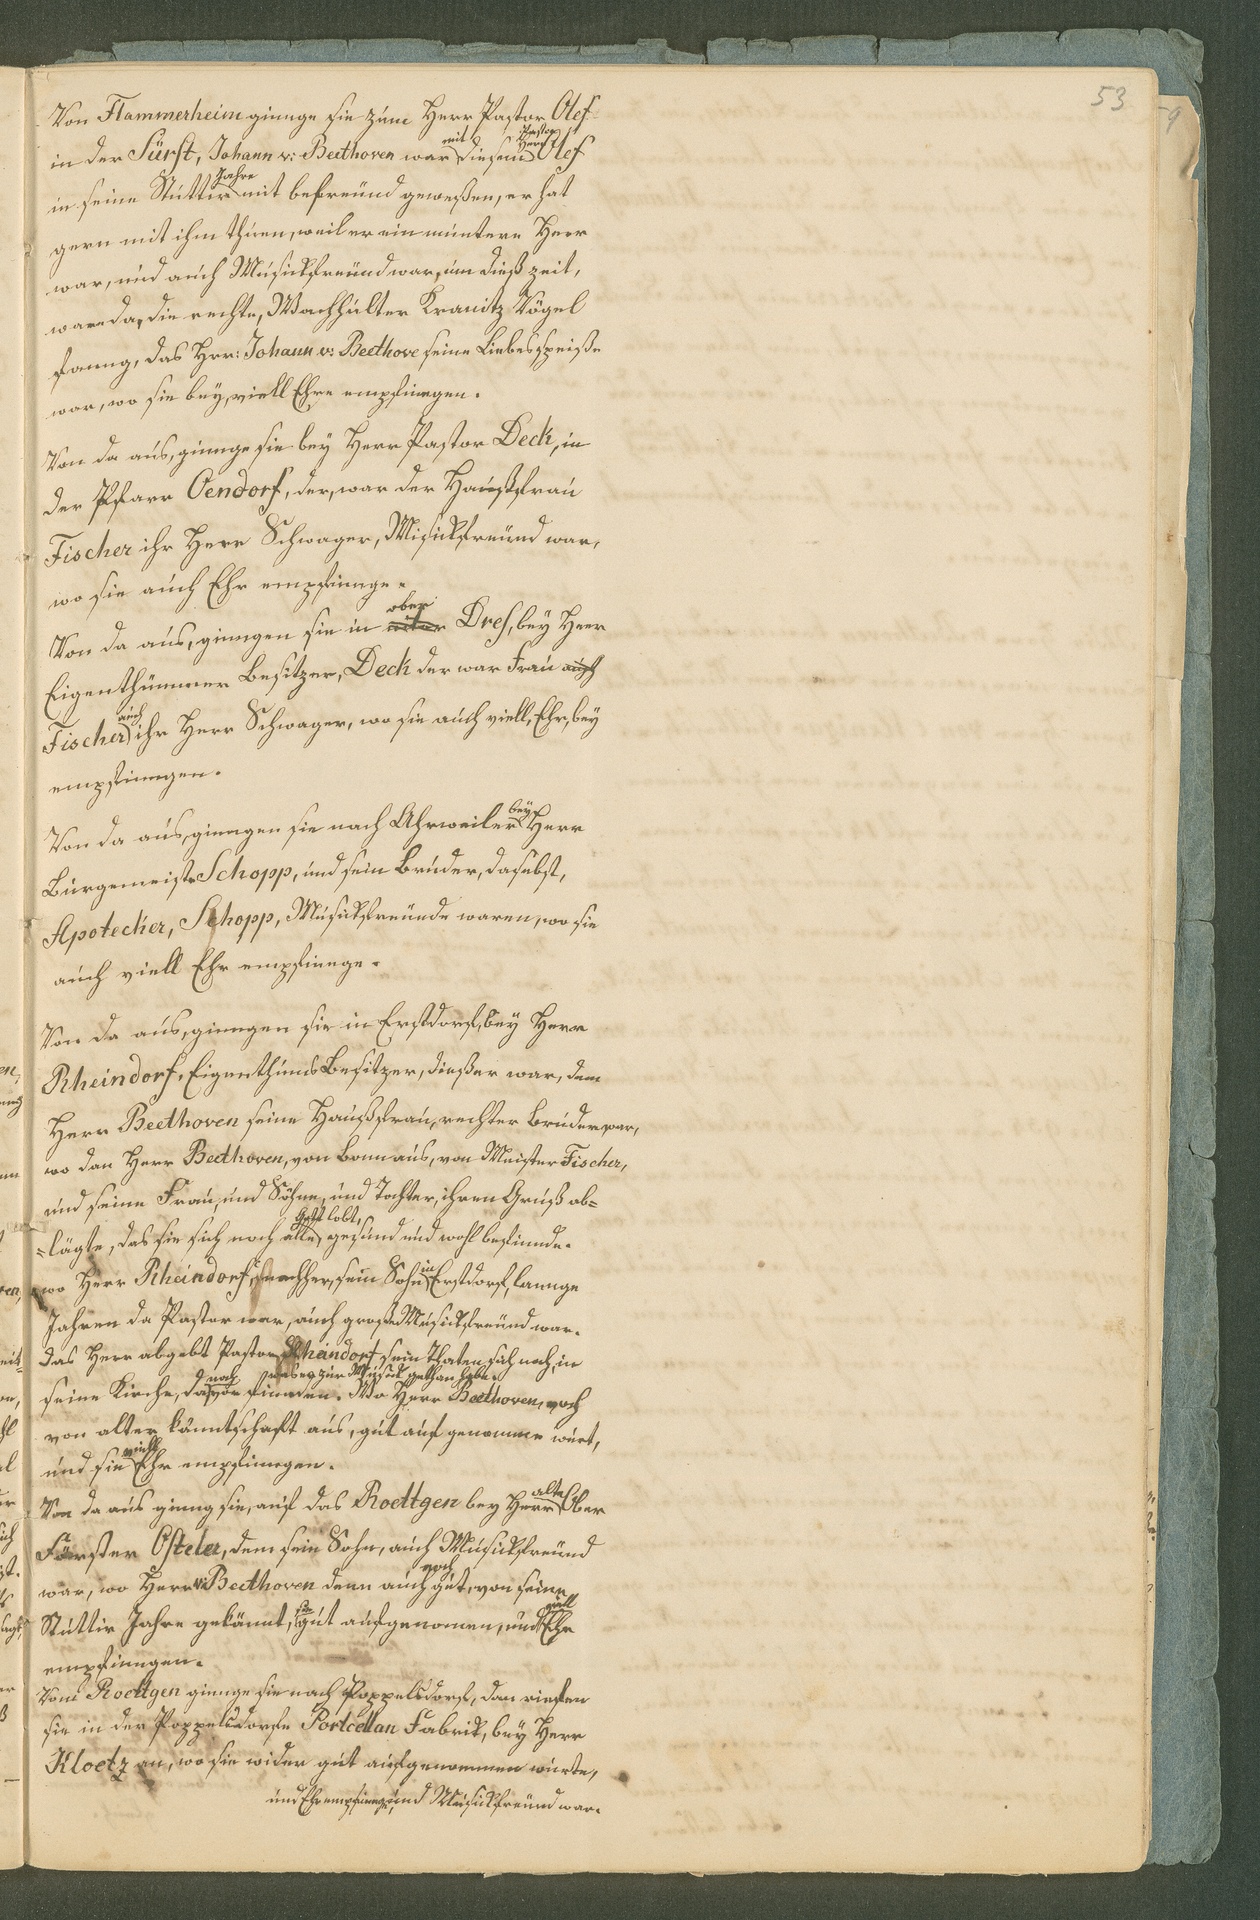 53
Von Flammerheim ginnge sie zum Herr Pastor Olef
in der Sürst, Johann v: Beethoven war mit diesem Herr Pastor Olef
in seine Stuttir Jahre mit befreünd geweßen, er hat
gern mit ihm thuen, weil er ein muntere Herr
war, und auch Musickfreünd war, um dieß zeit,
ware da, die rechte, Wachhülter Kranitz Vögel
fanng, das Hrr: Johann v: Beethove seine Liebesspeiße
war, wo sie bey, viell Ehre empfinngen.
Von da aus, ginnge sie bey Herr Pastor Deck, in
der Pfarr Oendorf, der, war der Haußfrau
Fischer ihr Herr Schwager, Misickfreünd war,
wo sie auch Ehr empfinnge.
Von da aus, ginngen sie in ober Dres, bey Herr
Eigenthümmer Besitzer, Deck der war Frau auch
Fischer auch ihr Herr Schwager, wo sie auch viell, Ehr, bey
empfinngen.
Von da aus, ginngen sie nach Ahrweiler bey Herr
Bürgemeistr Schopp, und sein Bruder, daselbst,
Apotecker, Schopp, Musickfreünde waren, wo sie
auch viell Ehr empfinnge.
Von da aus, ginngen sie in Erstdorf, bey Herr
Rheindorf, Eigenthums Besitzer, dießer war, dem
Herr Beethoven seine Haußfrau, rechter Bruder war,
wo dan Herr Beethoven, von Bonn aus, von Meister Fischer,
und seine Frau, und Söhne, und Tochter, ihren Gruß ab=
=lägte, das sie sich noch alle Gott lobt, gesund und wohl befinnde.
wo Herr Rheindorf, nachher, sein Sohn in Erstdorf, lannge
Jahren da Pastor war, auch große Musickfreünd war.
das Herr abgebt Pastor Rheindorf sein Thaten sich noch, in
seine Kirche, da noch vor finnden. was er zur Musick gethan habe. Wo Herr Beethoven, noch
von alter känntschaft aus, gut auf genomme wurt,
und sie viell Ehr empfinngen.
Von da aus ginng sie, auf das Roettgen bey Herr alte Ober
Förster Osteler, dem sein Sohn, auch Musickfreünd
war, wo Herr v: Beethoven denn auch noch gut, von seine
Stuttir Jahre gekännt, sie gut aufgenomen, und viell Ehr
empfinngen.
Vom Roettgen ginnge sie nach Poppelsdorf, dan riefen
sie in der Poppelsdorfe Portcellan Fabrick, bey Herr
Kloetz an, wo sie wider gut aufgenommen wurte,
und Ehr empfinnge, und Musickfreünd war.